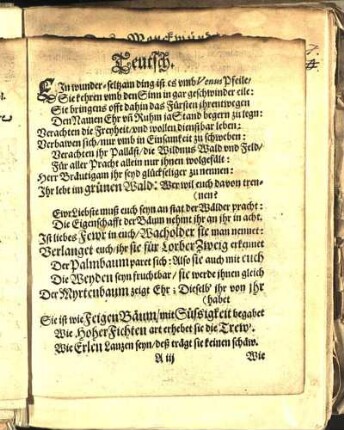 Teutsch.
EIn wunder-seltzam ding ist es vmb Venus Pfeile/
Sie kehren vmb den Sinn in gar geschwinder eile:
Sie bringens offt dahin das Fürsten ihrentwegen
Den Namen Ehr vñ Ruhm ja Stand begern zu legn:
Verachten die Freyheit/ vnd wollen dienstbar leben:
Verbawen sich/ nur vmb in Einsamkeit zu schweben:
Verachten ihr Palläst/ die Wildnus Wald vnd Feld/
Für aller Pracht allein nur ihnen wolgefält:
Herr Bräutigam ihr seyd glückseliger zu nennen:
Ihr lebt im grünen Wald: Wer wil euch davon tren-
(nen?
Ewr Liebste muß euch seyn an stat der Wälder pracht:
Die Eigenschafft der Bäum nehmt ihr an ihr in acht.
Ist liebes Fewr in euch/ Wacholder sie man nennet:
Verlanget euch/ ihr sie für Lorber Zweig erkennet
Der Palmbaum paret sich: Also sie auch mit euch
Die Weyden seyn fruchtbar/ sie werde ihnen gleich
Der Myrtenbaum zeigt Ehr: Dieselb' ihr von ihr
(habet
Sie ist wie Feigen Bäum/ mit Süssigkeit begabet
Wie Hoher Fichten art erhebet sie die Trew.
Wie Erlen Lanzen seyn/ deß trägt sie keinen schäw.
A iij
Wie